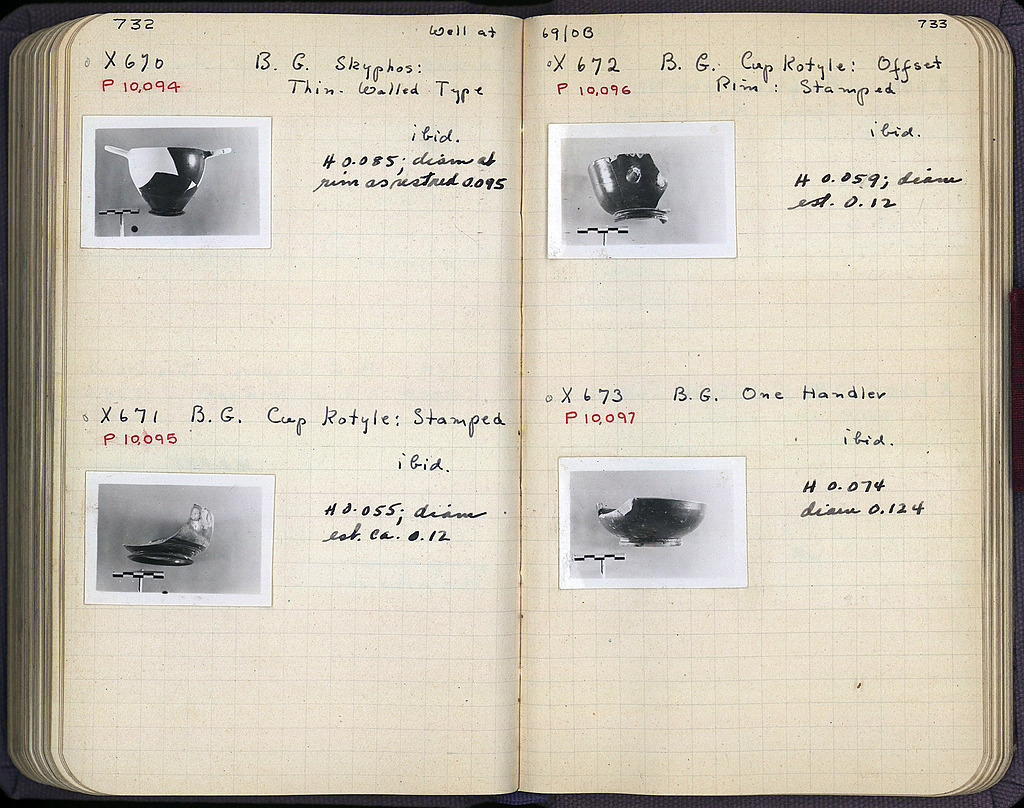 732
Well at
X 670 B. G. Skyphos:
P 10,094 Thin-Walled Type
ibid.
H 0.085; diam at
rim as restored 0.095
X 671 B. G. Cup Kotyle: Stamped
P 10,095
ibid.
H 0.055; diam
est. ca. 0.12
733
69/ΟΒ
X 672 B. G. Cup Kotyle: Offset
P 10,096 Rim: Stamped
ibid.
H 0.059; diam
est. 0.12
X 673 B. G. One Handler
P 10,097
ibid.
H 0.074
diam 0.124